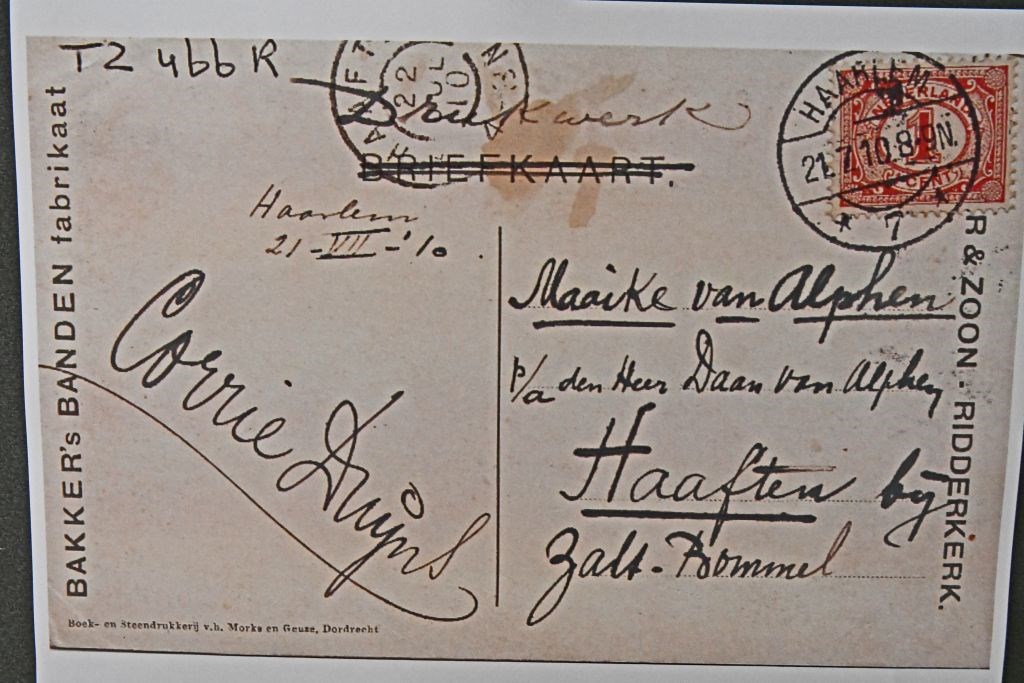 TZ 466 R
Drukwerk
BRIEFKAART.
HAARLEM
21.7.10.8-9N.
7
NEDERLAND
1
CENT
22 JUL 10
Haarlem
21-VII-'10.
Corrie Duijns
Maaike van Alphen
p/a den Heer Daan van Alphen
Haaften bij
Zalt-Bommel
BAKKER's BANDEN fabrikaat
R & ZOON - RIDDERKERK.
Boek- en Steendrukkerij v.h. Morks en Geuze, Dordrecht